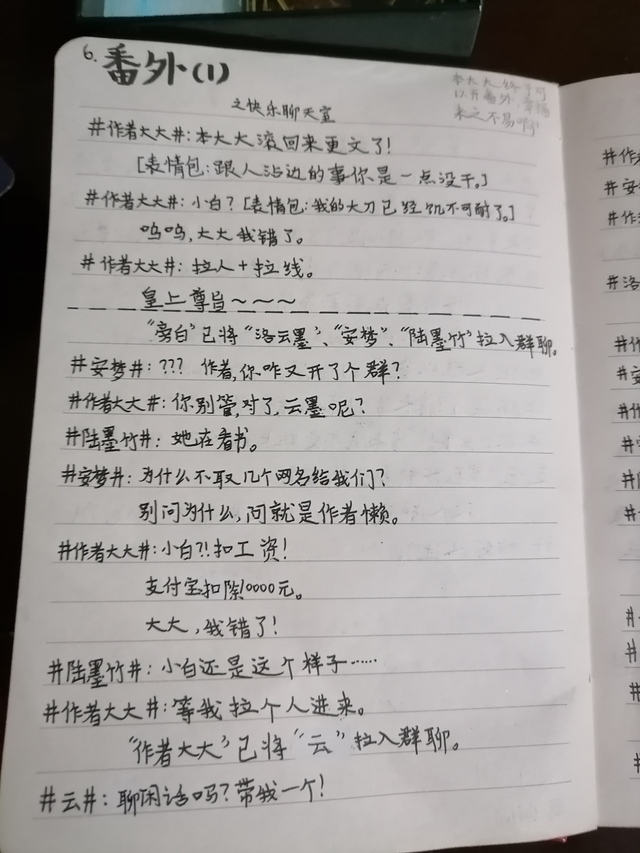 6. 番外(1)
本大大终于可
以开番外,幸福
来之不易啊!
之快乐聊天室
#作者大大#:本大大滚回来更文了!
[表情包:跟人沾边的事你是一点没干。]
#作者大大#:小白?[表情包:我的大刀已经饥不可耐了。]
呜呜,大大我错了。
#作者大大#:拉人+拉线。
皇上尊旨~~~
“旁白”已将“洛云墨”、“安梦”、“陆墨竹”拉入群聊。
#安梦#:??? 作者,你咋又开了个群?
#作者大大#:你别管,对了,云墨呢?
#陆墨竹#:她在看书。
#安梦#:为什么不取几个网名给我们?
别问为什么,问就是作者懒。
#作者大大#:小白?!扣工资!
支付宝扣除10000元。
大大,我错了!
#陆墨竹#:小白还是这个样子……
#作者大大#:等我拉个人进来。
“作者大大”已将“云”拉入群聊。
#云#:聊闲话吗?带我一个!
#作
#安
#作
#洛
#作
#安
#作